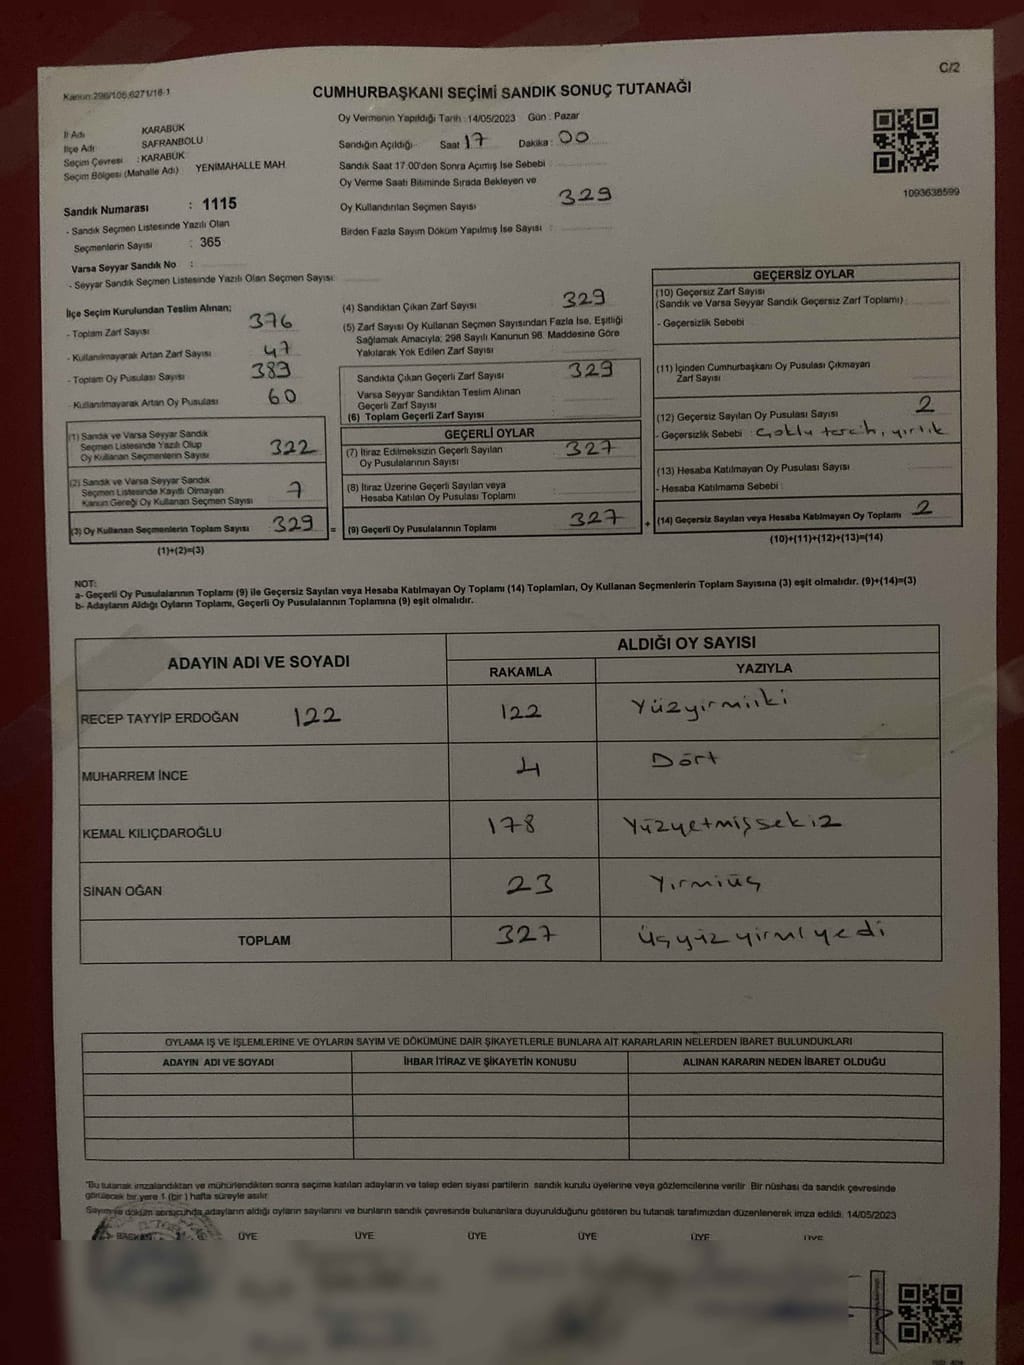 C/2
Kanun:298/106,6271/18-1
CUMHURBAŞKANI SEÇİMİ SANDIK SONUÇ TUTANAĞI
İl Adı KARABÜK
İlçe Adı SAFRANBOLU
Seçim Çevresi : KARABÜK
Seçim Bölgesi (Mahalle Adı) YENİMAHALLE MAH
Sandık Numarası : 1115
- Sandık Seçmen Listesinde Yazılı Olan
Seçmenlerin Sayısı : 365
Varsa Seyyar Sandık No :
- Seyyar Sandık Seçmen Listesinde Yazılı Olan Seçmen Sayısı:
Oy Vermenin Yapıldığı Tarih : 14/05/2023 Gün : Pazar
Sandığın Açıldığı Saat 17 Dakika : 00
Sandık Saat 17.00'den Sonra Açımış İse Sebebi
Oy Verme Saati Bitiminde Sırada Bekleyen ve
Oy Kullandırılan Seçmen Sayısı 329
Birden Fazla Sayım Döküm Yapılmış İse Sayısı :
1093638599
İlçe Seçim Kurulundan Teslim Alınan;
- Toplam Zarf Sayısı 376
- Kullanılmayarak Artan Zarf Sayısı 47
- Toplam Oy Pusulası Sayısı 383
- Kullanılmayarak Artan Oy Pusulası 60
(1) Sandık ve Varsa Seyyar Sandık
Seçmen Listesinde Yazılı Olup
Oy Kullanan Seçmenlerin Sayısı 322
(2) Sandık ve Varsa Seyyar Sandık
Seçmen Listesinde Kayıtlı Olmayan
Kanun Gereği Oy Kullanan Seçmen Sayısı 7
(3) Oy Kullanan Seçmenlerin Toplam Sayısı 329 =
(1)+(2)=(3)
(4) Sandıktan Çıkan Zarf Sayısı 329
(5) Zarf Sayısı Oy Kullanan Seçmen Sayısından Fazla İse, Eşitliği
Sağlamak Amacıyla; 298 Sayılı Kanunun 98. Maddesine Göre
Yakılarak Yok Edilen Zarf Sayısı
Sandıkta Çıkan Geçerli Zarf Sayısı 329
Varsa Seyyar Sandıktan Teslim Alınan
Geçerli Zarf Sayısı
(6) Toplam Geçerli Zarf Sayısı
GEÇERLİ OYLAR
(7) İtiraz Edilmeksizin Geçerli Sayılan
Oy Pusulalarının Sayısı 327
(8) İtiraz Üzerine Geçerli Sayılan veya
Hesaba Katılan Oy Pusulası Toplamı
(9) Geçerli Oy Pusulalarının Toplamı 327 +
GEÇERSİZ OYLAR
(10) Geçersiz Zarf Sayısı
(Sandık ve Varsa Seyyar Sandık Geçersiz Zarf Toplamı)
- Geçersizlik Sebebi
(11) İçinden Cumhurbaşkanı Oy Pusulası Çıkmayan
Zarf Sayısı
(12) Geçersiz Sayılan Oy Pusulası Sayısı 2
- Geçersizlik Sebebi : Çoklu tercih, yırtık
(13) Hesaba Katılmayan Oy Pusulası Sayısı
- Hesaba Katılmama Sebebi
(14) Geçersiz Sayılan veya Hesaba Katılmayan Oy Toplamı 2
(10)+(11)+(12)+(13)=(14)
NOT:
a- Geçerli Oy Pusulalarının Toplamı (9) ile Geçersiz Sayılan veya Hesaba Katılmayan Oy Toplamı (14) Toplamları, Oy Kullanan Seçmenlerin Toplam Sayısına (3) eşit olmalıdır. (9)+(14)=(3)
b- Adayların Aldığı Oyların Toplamı, Geçerli Oy Pusulalarının Toplamına (9) eşit olmalıdır.
ADAYIN ADI VE SOYADI ALDIĞI OY SAYISI
RAKAMLA YAZIYLA
RECEP TAYYİP ERDOĞAN 122 122 Yüzyirmiiki
MUHARREM İNCE 4 Dört
KEMAL KILIÇDAROĞLU 178 Yüzyetmişsekiz
SİNAN OĞAN 23 Yirmiüç
TOPLAM 327 Üçyüzyirmiyedi
OYLAMA İŞ VE İŞLEMLERİNE VE OYLARIN SAYIM VE DÖKÜMÜNE DAİR ŞİKAYETLERLE BUNLARA AİT KARARLARIN NELERDEN İBARET BULUNDUKLARI
ADAYIN ADI VE SOYADI İHBAR İTİRAZ VE ŞİKAYETİN KONUSU ALINAN KARARIN NEDEN İBARET OLDUĞU
"Bu tutanak imzalandıktan ve mühürlendikten sonra seçime katılan adayların ve talep eden siyasi partilerin sandık kurulu üyelerine veya gözlemcilerine verilir. Bir nüshası da sandık çevresinde
görülecek bir yere 1 (bir) hafta süreyle asılır.
Sayım ve döküm sonucunda adayların aldığı oyların sayılarını ve bunların sandık çevresinde bulunanlara duyurulduğunu gösteren bu tutanak tarafımızdan düzenlenerek imza edildi. 14/05/2023
BAŞKAN ÜYE ÜYE ÜYE ÜYE ÜYE ÜYE